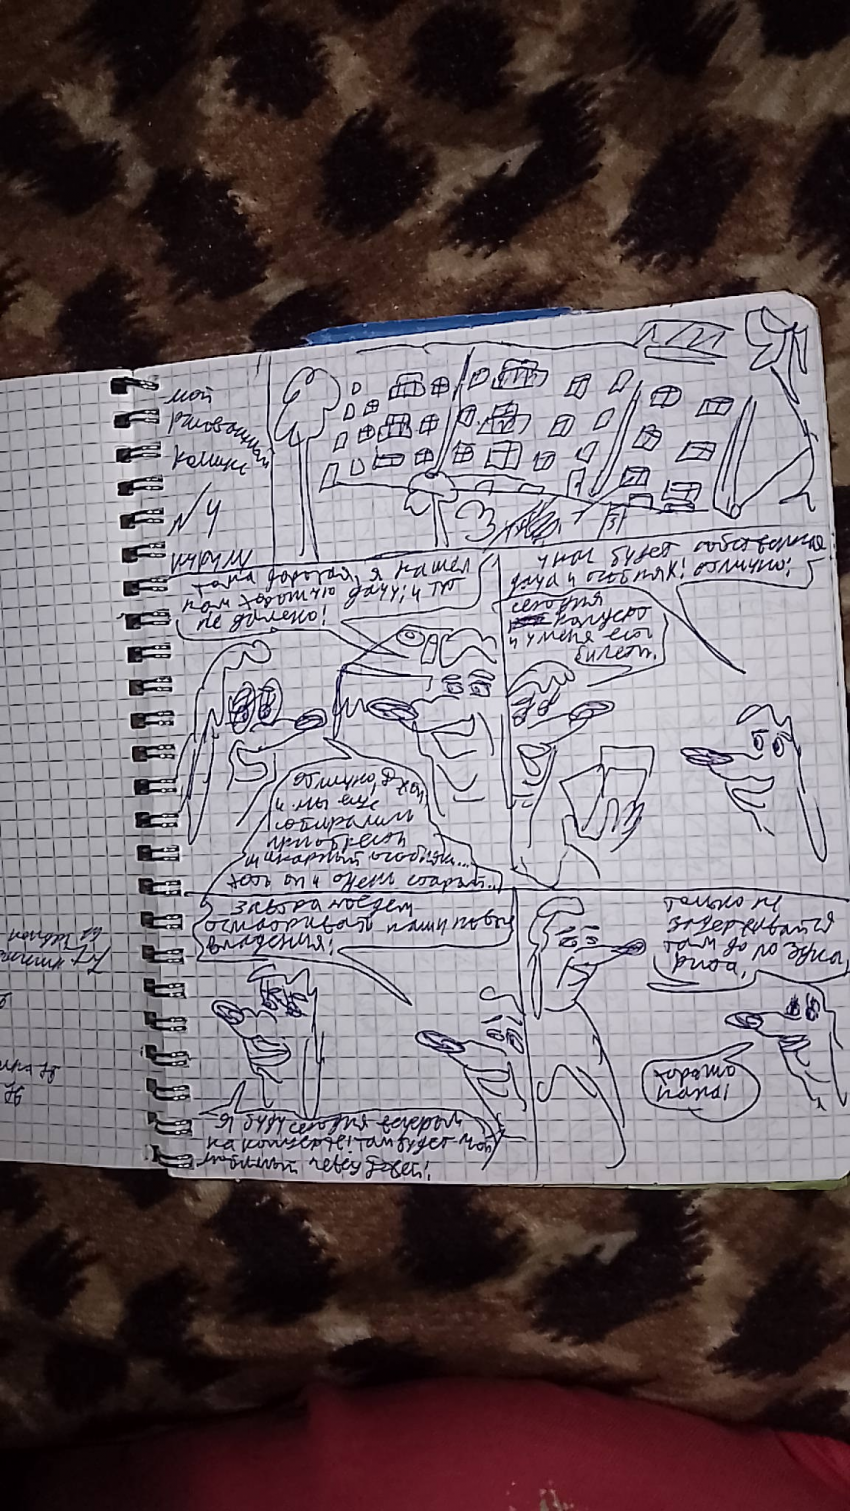 мой
рисованный
комикс
N 4
я нашел
нам хорошую дачу, и тут
не далеко!
у нас будет собственная
дача и особняк! отлично!
сегодня
концерт
и у меня есть
билеты.
отлично,
и мы еще
собирались
приобрести
шикарный особняк...
хоть он и очень старый...
завтра поедем
осматривать наши новые
владения!
только не
задерживайся
там до поздна,
хорошо
папа!
Я буду сегодня вечером
на концерте! там будет мой
любимый певец